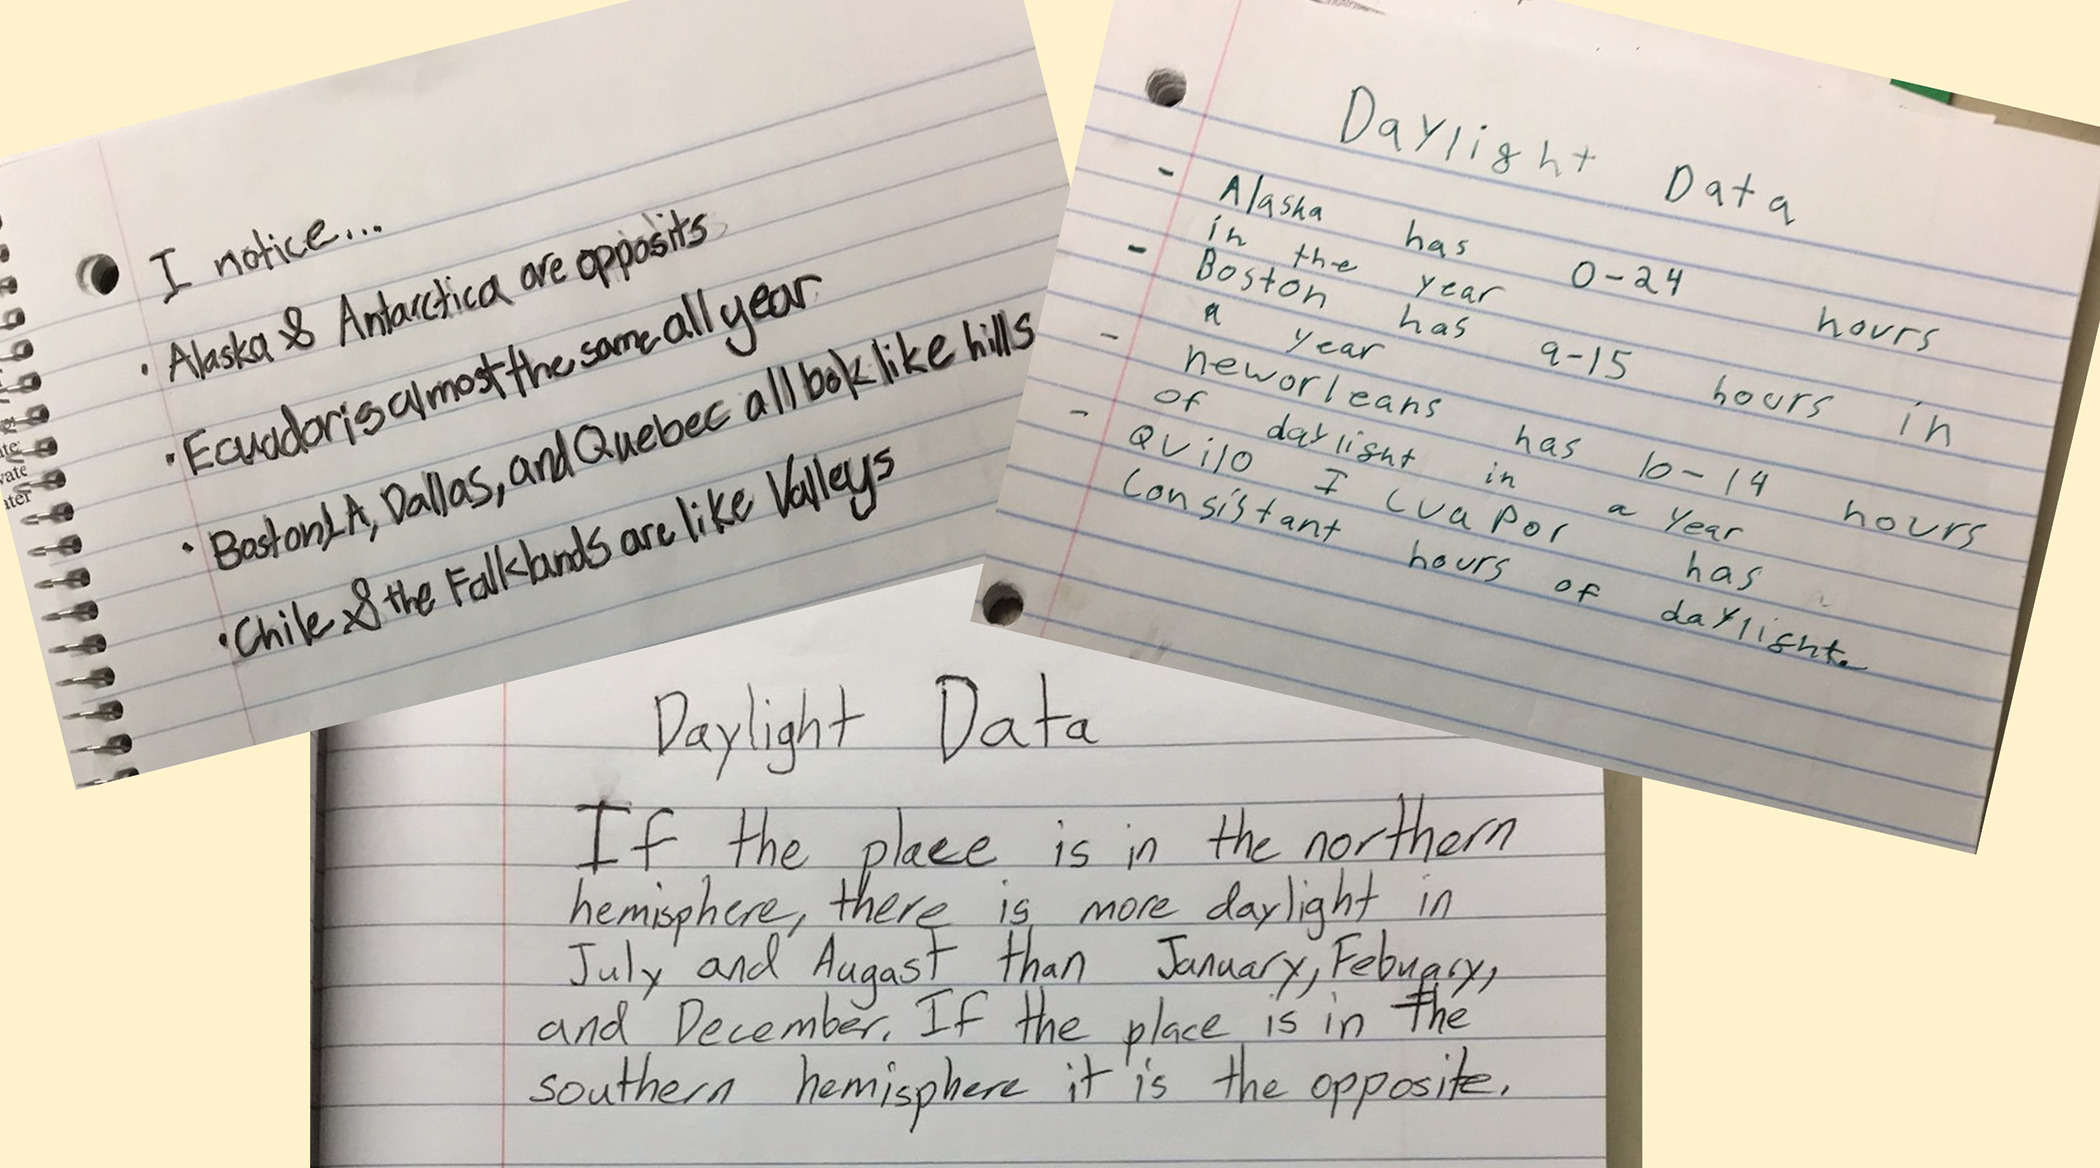 I notice...
• Alaska & Antarctica are opposits
• Ecuador is almost the same all year
• Boston, LA, Dallas, and Quebec all look like hills
• Chile & the Falklands are like Valleys
vate
ater
Daylight Data
- Alaska has 0-24 hours
in the year
- Boston has 9-15 hours in
a year
- neworleans has 10-14 hours
of daylight in a year
- Quito I cuapor has
consistant hours of daylight.
Daylight Data
If the place is in the northern
hemisphere, there is more daylight in
July and Augast than January, Febuary,
and December. If the place is in the
southern hemisphere it is the opposite.